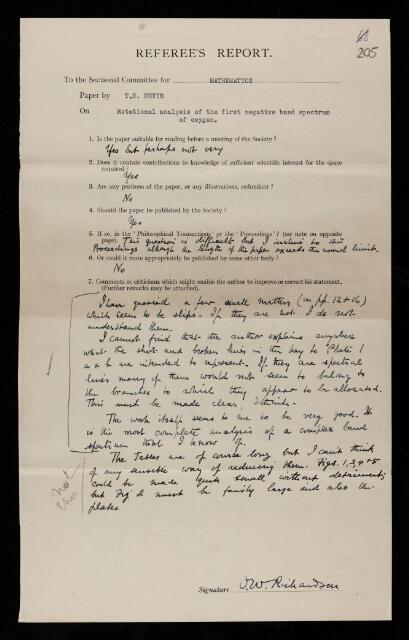 68
205
REFEREE'S REPORT.
To the Sectional Committee for MATHEMATICS
Paper by T.E. NEVIN
On Rotational analysis of the first negative band spectrum
of oxygen.
1. Is the paper suitable for reading before a meeting of the Society?
Yes but perhaps not very
2. Does it contain contributions to knowledge of sufficient scientific interest for the space
required?
Yes
3. Are any portions of the paper, or any illustrations, redundant?
No
4. Should the paper be published by the Society?
Yes
5. If so, in the 'Philosophical Transactions' or the 'Proceedings'? (see note on opposite
page). This question is difficult but I incline to the
Proceedings although the length of the paper exceeds the normal limits.
6. Or could it more appropriately be published by some other body?
No
7. Comments or criticisms which might enable the author to improve or correct his statement.
(Further remarks may be attached).
I have queried a few small matters (on pp. 12 + 16)
which seem to be slips. If they are not I do not
understand them.
I cannot find that the author explains anywhere
what the short and broken lines in the key to Plate 1
a & b are intended to represent. If they are spectral
lines many of them would not seem to belong to
the branches to which they appear to be allocated.
This must be made clear, I think.
The work itself seems to me to be very good. It
is the most complete analysis of a complex band
spectrum that I know of.
The Tables are of course long but I can't think
of any sensible way of reducing them. Figs. 1, 3, 4 + 5
could be made quite small without detriment;
but Fig 2 must be fairly large and also the
plates.
not
Signature O.W. Richardson